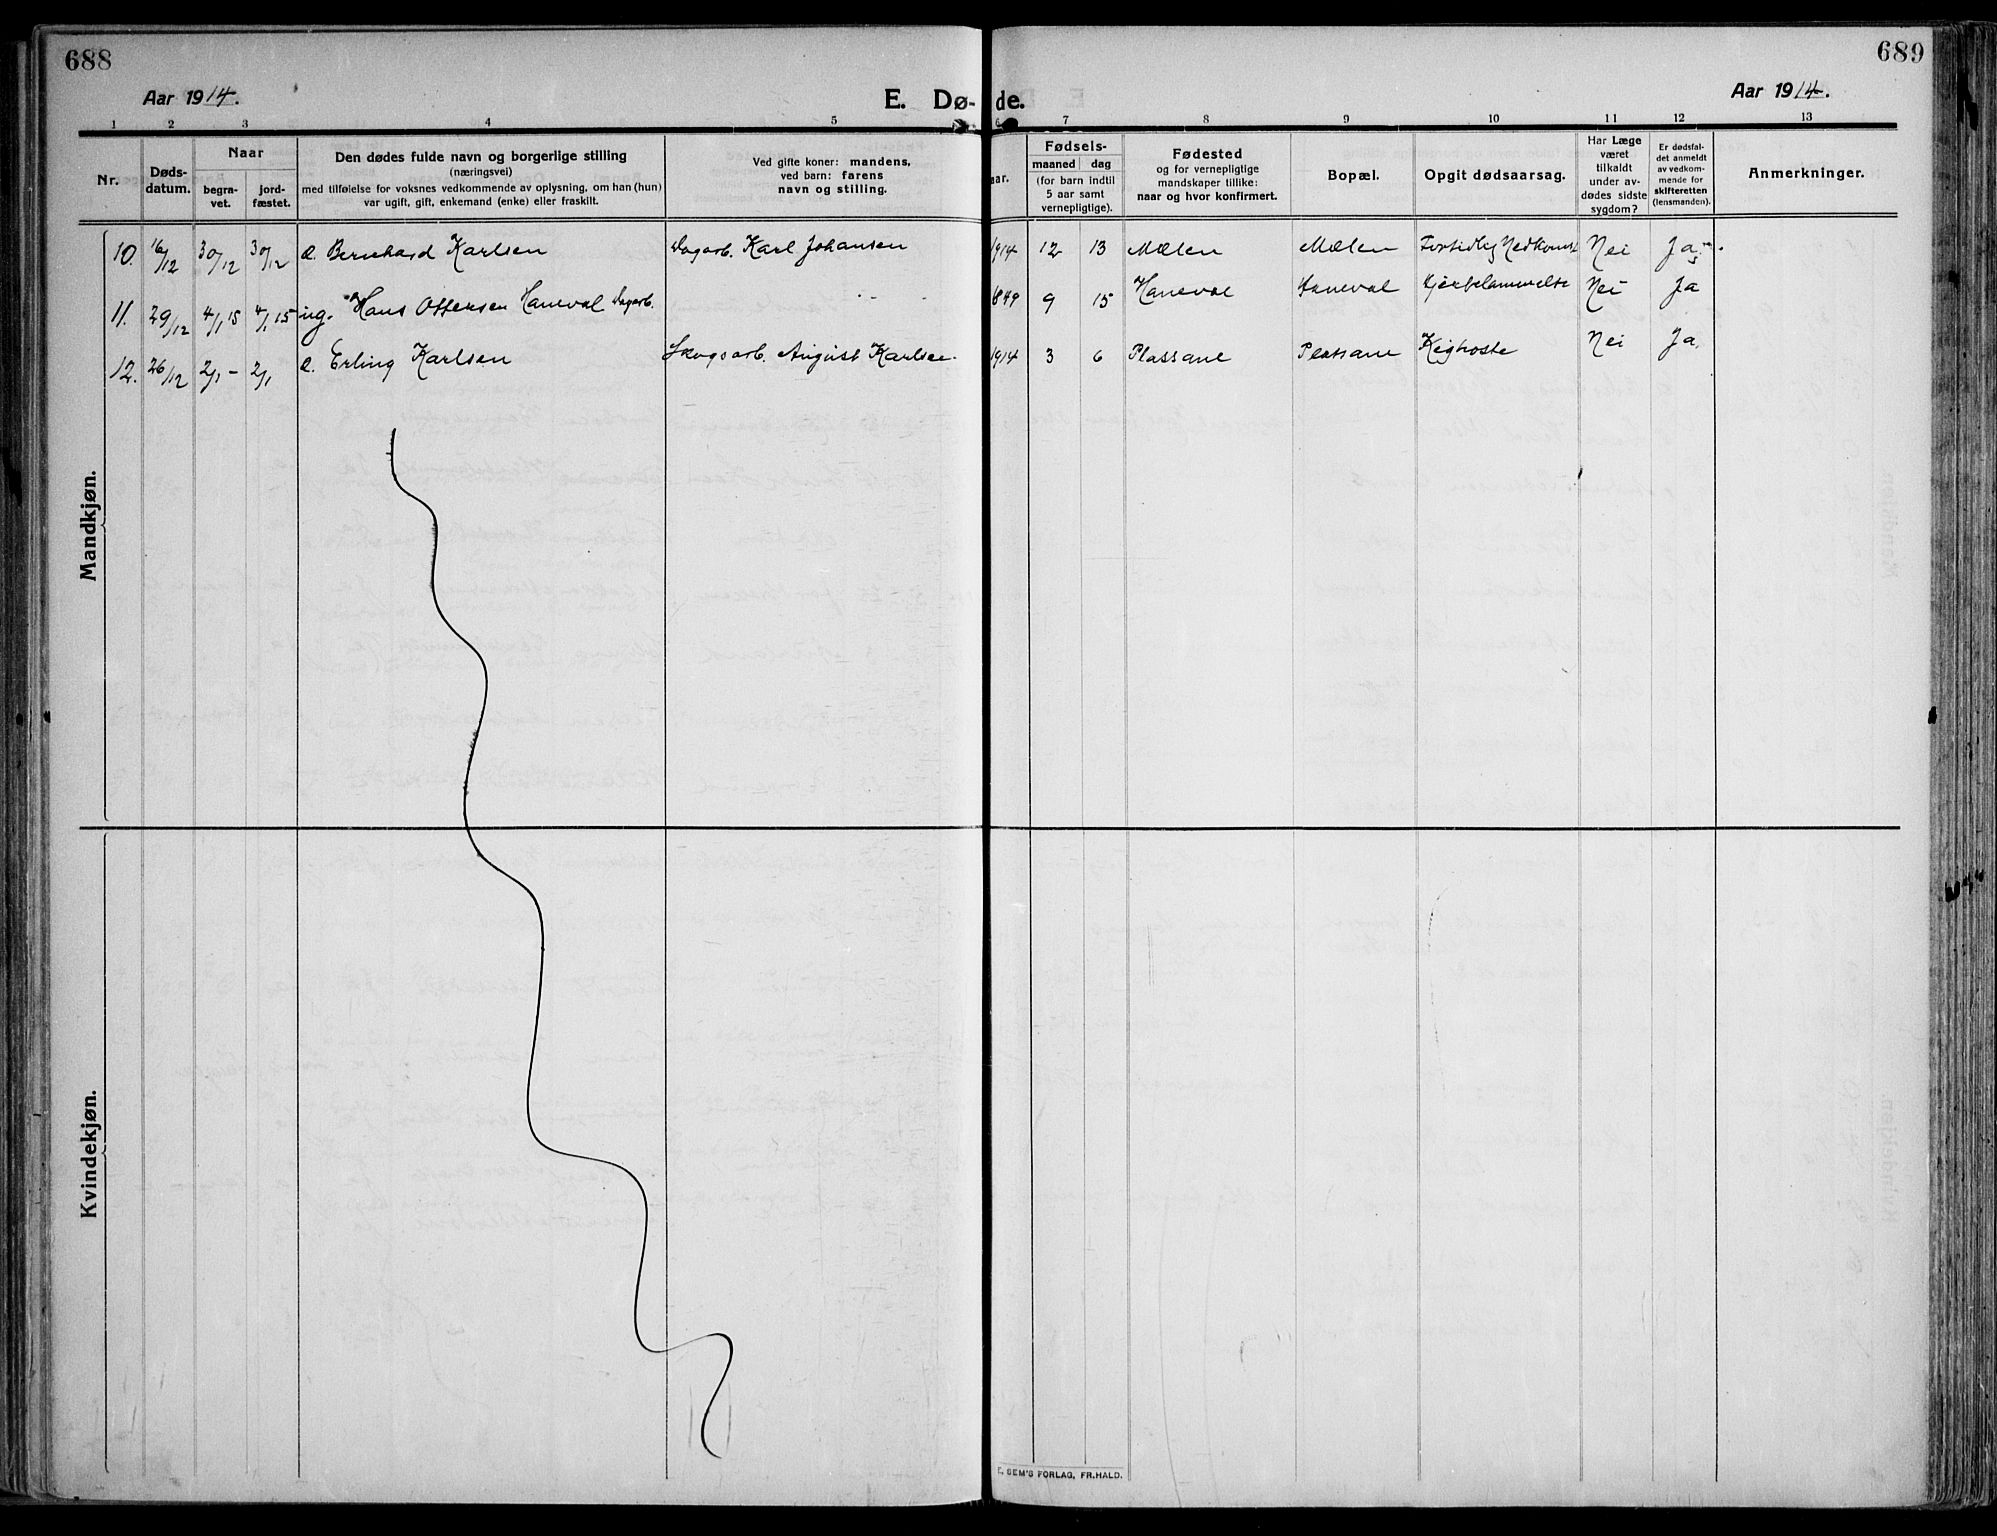 688
689
Aar 1914.
E. Dø-
de.
Aar 1914.
1 2 3 4 5 6 7 8 9 10 11 12 13
Nr.
Døds-
datum.
Naar
begra-
vet.
jord-
fæstet.
Den dødes fulde navn og borgerlige stilling
(næringsvei)
med tilføielse for voksnes vedkommende av oplysning, om han (hun)
var ugift, gift, enkemand (enke) eller fraskilt.
Ved gifte koner: mandens,
ved barn: farens
navn og stilling.
aar.
Fødsels-
maaned dag
(for barn indtil
5 aar samt
vernepligtige).
Fødested
og for vernepligtige
mandskaper tillike:
naar og hvor konfirmert.
Bopæl.
Opgit dødsaarsag.
Har Læge
været
tilkaldt
under av-
dødes sidste
sygdom?
Er dødsfal-
det anmeldt
av vedkom-
mende for
skifteretten
(lensmanden).
Anmerkninger.
Mandkjøn.
10. 16/12 30/12 30/12 Bernhard Karlsen Dagarb. Karl Johansen 1914 12 13 Mælen Mælen Fortidlig Nedkomst Nei Ja
11. 29/12 4/1 15 4/1 15 ug. Hans Ottersen Haneval Dagarb. " " 1849 9 15 Haneval Haneval Hjertelammelse Nei Ja
12. 26/12 2/1 - 2/1 Erling Karlsen Skogsarb. August Karlsen 1914 3 6 Plassane Plassane Kighoste Nei Ja.
Kvindekjøn.
E. SEM'S FORLAG, FR.HALD.